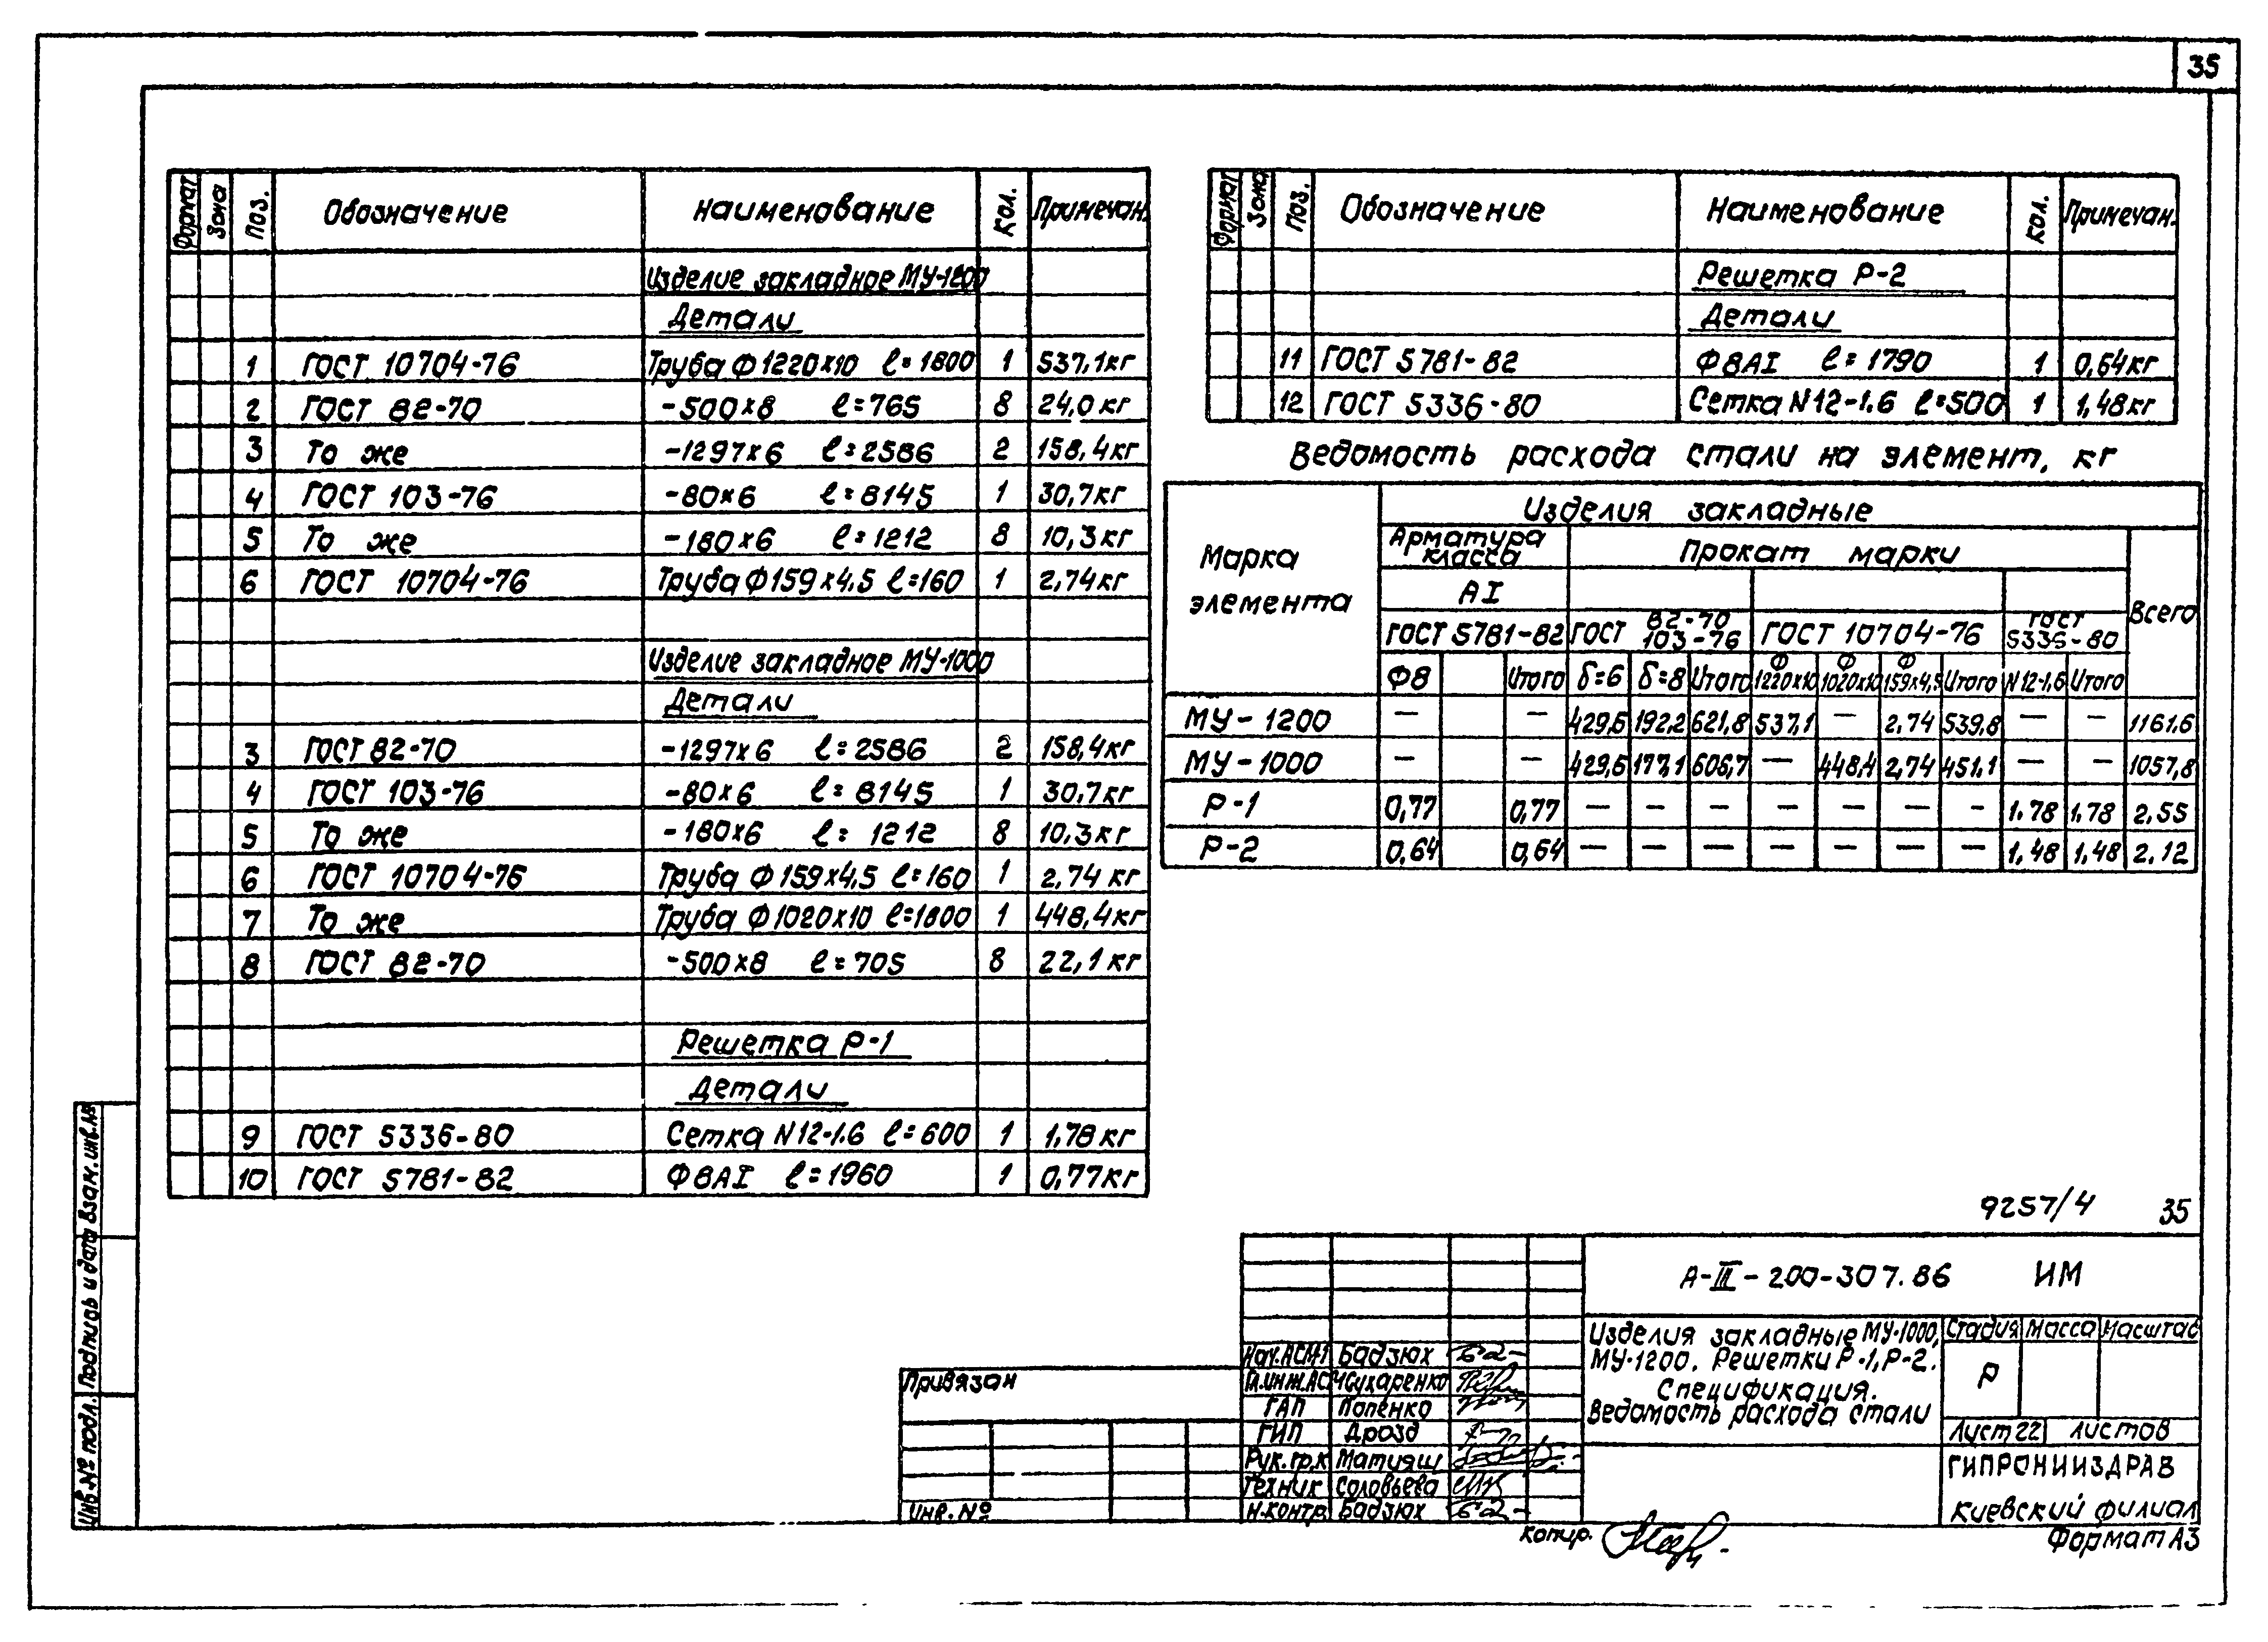 35
Формат Зона Поз. Обозначение Наименование Кол. Примечан.
Изделие закладное МУ-1200
Детали
1 ГОСТ 10704-76 Труба Ф1220х10 l=1800 1 537,1кг
2 ГОСТ 82-70 -500х8 l=765 8 24,0кг
3 То же -1297х6 l=2586 2 158,4кг
4 ГОСТ 103-76 -80х6 l=8145 1 30,7кг
5 То же -180х6 l=1212 8 10,3кг
6 ГОСТ 10704-76 Труба Ф159х4,5 l=160 1 2,74кг
Изделие закладное МУ-1000
Детали
3 ГОСТ 82-70 -1297х6 l=2586 2 158,4кг
4 ГОСТ 103-76 -80х6 l=8145 1 30,7кг
5 То же -180х6 l=1212 8 10,3кг
6 ГОСТ 10704-76 Труба Ф159х4,5 l=160 1 2,74кг
7 То же Труба Ф1020х10 l=1800 1 448,4кг
8 ГОСТ 82-70 -500х8 l=705 8 22,1кг
Решетка Р-1
Детали
9 ГОСТ 5336-80 Сетка N12-1.6 l=600 1 1,78кг
10 ГОСТ 5781-82 Ф8АI l=1960 1 0,77кг
Формат Зона Поз. Обозначение Наименование Кол. Примечан.
Решетка Р-2
Детали
11 ГОСТ 5781-82 Ф8АI l=1790 1 0,64кг
12 ГОСТ 5336-80 Сетка N12-1.6 l=500 1 1,48кг
Ведомость расхода стали на элемент, кг
Марка элемента
Изделия закладные
Арматура класса
Прокат марки
АI
Всего
ГОСТ 5781-82 ГОСТ 82-70 103-76 ГОСТ 10704-76 ГОСТ 5336-80
Ф8 Итого δ=6 δ=8 Итого Ф1220х10 Ф1020х10 Ф159х4,5 Итого N12-1,6 Итого
МУ-1200 — — 429,6 192,2 621,8 537,1 — 2,74 539,8 — — 1161.6
МУ-1000 — — 429,6 177,1 606,7 — 448,4 2,74 451,1 — — 1057,8
Р-1 0,77 0,77 — — — — — — — 1.78 1,78 2,55
Р-2 0,64 0,64 — — — — — — — 1,48 1,48 2.12
9257/4 35
А-III-200-307.86 ИМ
Изделия закладные МУ-1000,
МУ-1200. Решетки Р-1, Р-2.
Спецификация.
Ведомость расхода стали
Стадия Масса Масштаб
Р
Лист 22 Листов
ГИПРОНИИЗДРАВ
Киевский филиал
Нач.АСМ-1 Бадзюх
Гл.инж.АСЧ Сухаренко
ГАП Попенко
ГИП Дрозд
Рук.гр.к Матияш
Техник Соловьева
Н.контр. Бадзюх
Привязан
Инв.№
Копир.
Формат А3
Инв.№ подл. Подпись и дата Взам.инв.№